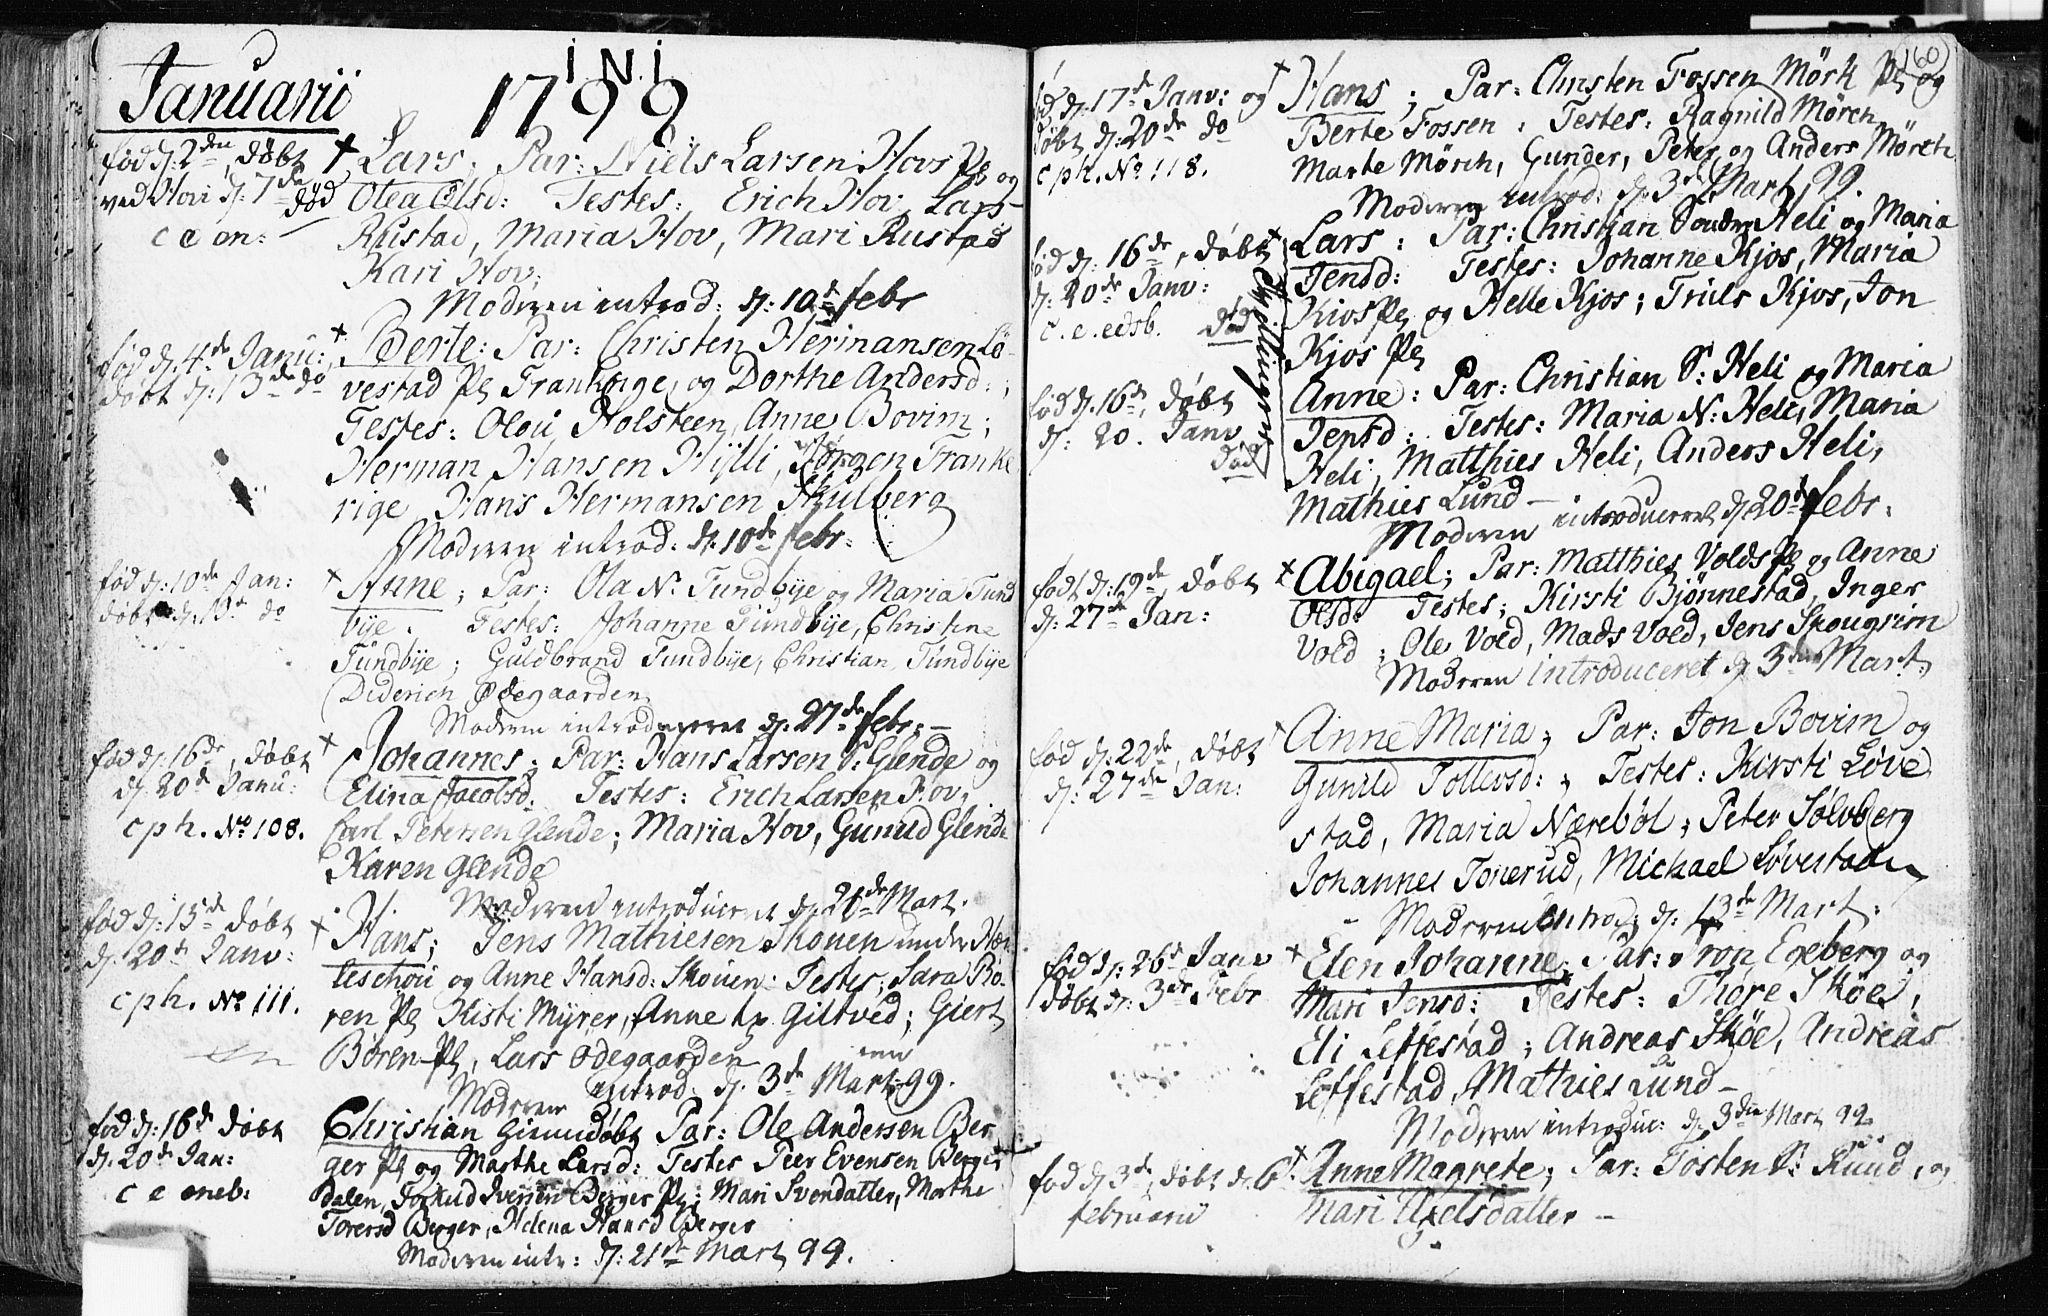 I N I
Januarii 1799
fød d: 2den, døbt
ved Hov d: 7de
død
c e en:
† Lars; Par: Niels Larsen Hovs Pl og
Olea Olsd: Testes: Erich Hov, Lars
Rustad, Maria Hov, Mari Rustad
Kari Hov;
Moderen introd: d: 10d febr
fød d: 4de Janu:
døbt d: 13de do
† Berte: Par: Christen Hermansen Lö-
vestad Pl Frankrige, og Dorthe Andersd:,
Testes: Oloü Holsteen, Anne Bovim;
Herman Hansen Hylli, Jörgen Frank
rige, Hans Hermansen Skulberg
Moderen introd: d: 10de febr:
fød d: 10de Jan:
døbt d: do
† Anne; Par: Ola N: Tundbye og Maria Tund
bye. Testes: Johanne Tundbye, Christine
Tundbye; Guldbrand Tundbye, Christian Tundbye
Diderich Ødegaarden
Moderen introduceret d: 27de febr: —
fød d: 16de, døbt
d: 20d Janu:
cph. No 108.
† Johannes; Par: Hans Larsen S: Glende og
Elina Jacobsd. Testes: Erich Larsen Hov,
Carl Petersen Glende; Maria Hov, Gunild Glende
Karen Glende
Moderen introduceret d: 21de Mart.
fød d: 15de døbt
d: 20d Janv:
cph. No 111.
† Hans; Jens Mathiesen Skouen under Hæs
teschou og Anne Hansd: Skouen: Testes; Sara Bö-
ren Pl Kisti Myrer, Anne Giltved; Giert
Børen Pl, Lars Ødegaarden
Moderen introd: d: 3de Mart: 99.
fød d: 16d døbt
d: 20d Jan:
c e eneb:
Christian Giemdøbt Par: Ole Andersen Ber
ger Pl og Marthe Larsd: Testes Peer Evensen Berger
dalen, Iversen Berger Pl; Mari Svendatter, Marthe
Torersd Berger, Helena Hansd Berger
Moderen intr: d: 21de Mart 99.
160
fød d: 17de Janv: og
døbt d: 20de do
cph. No 118.
† Hans; Par: Christen Fossen Mörk Pl og
Berte Fossen; Testes: Ragnild Mörch,
Marte Mörch, Gunder, Peter og Anders Mörch
Moderen introd: d: 3de Mart 99.
fød d: 16de, døbt
d: 20de Janv:
c. e. edsb. død
Tvillinger
† Lars: Par: Christian Heli og Maria
Jensd: Testes: Johanne Kjos, Maria
Kios Pl og Helle Kjos; Truls Kjos, Jon
Kjos Pl
fød d: 16d, døbt
d: 20. Janv
død
Anne: Par: Christian S: Heli og Maria
Jensd: Testes: Maria N: Heli, Maria
Heli, Matthies Heli, Anders Heli,
Mathies Lund —
Moderen introduceret d: 20d febr:
født d: 19de, døbt
d: 27de Jan:
† Abigael; Par: Matthies Volds Pl og Anne
Olsd: Testes; Kirsti Bjönnestad, Inger
Vold; Ole Vold, Mads Vold, Jens Skougrim
Moderen introduceret d: 3die Mart:
fød d: 22de, døbt
d: 27de Jan:
† Anne Maria; Par: Jon Bovim og
Gunild Tollevsd:; Testes: Kirsti Løve
stad, Maria Næreböl; Peter Sølvberg
Johannes Tonerud, Michael Løvestad
Moderen introd: d: 13de Mart:
fød d: 26d Janv
døbt d: 3de Febr
† Elen Johanne; Par: Tron Egeberg og
Mari Jensd: Testes: Thore Sköe,
Eli Leffestad; Andreas Sköe, Andreas
Leffestad, Mathies Lund —
Moderen introduc: d: 3die Mart 99
fød d: 3de, døbt d: 6t
februarii
† Anne Magrete; Par: Tosten S: Ruud, og
Mari Axelsdatter —